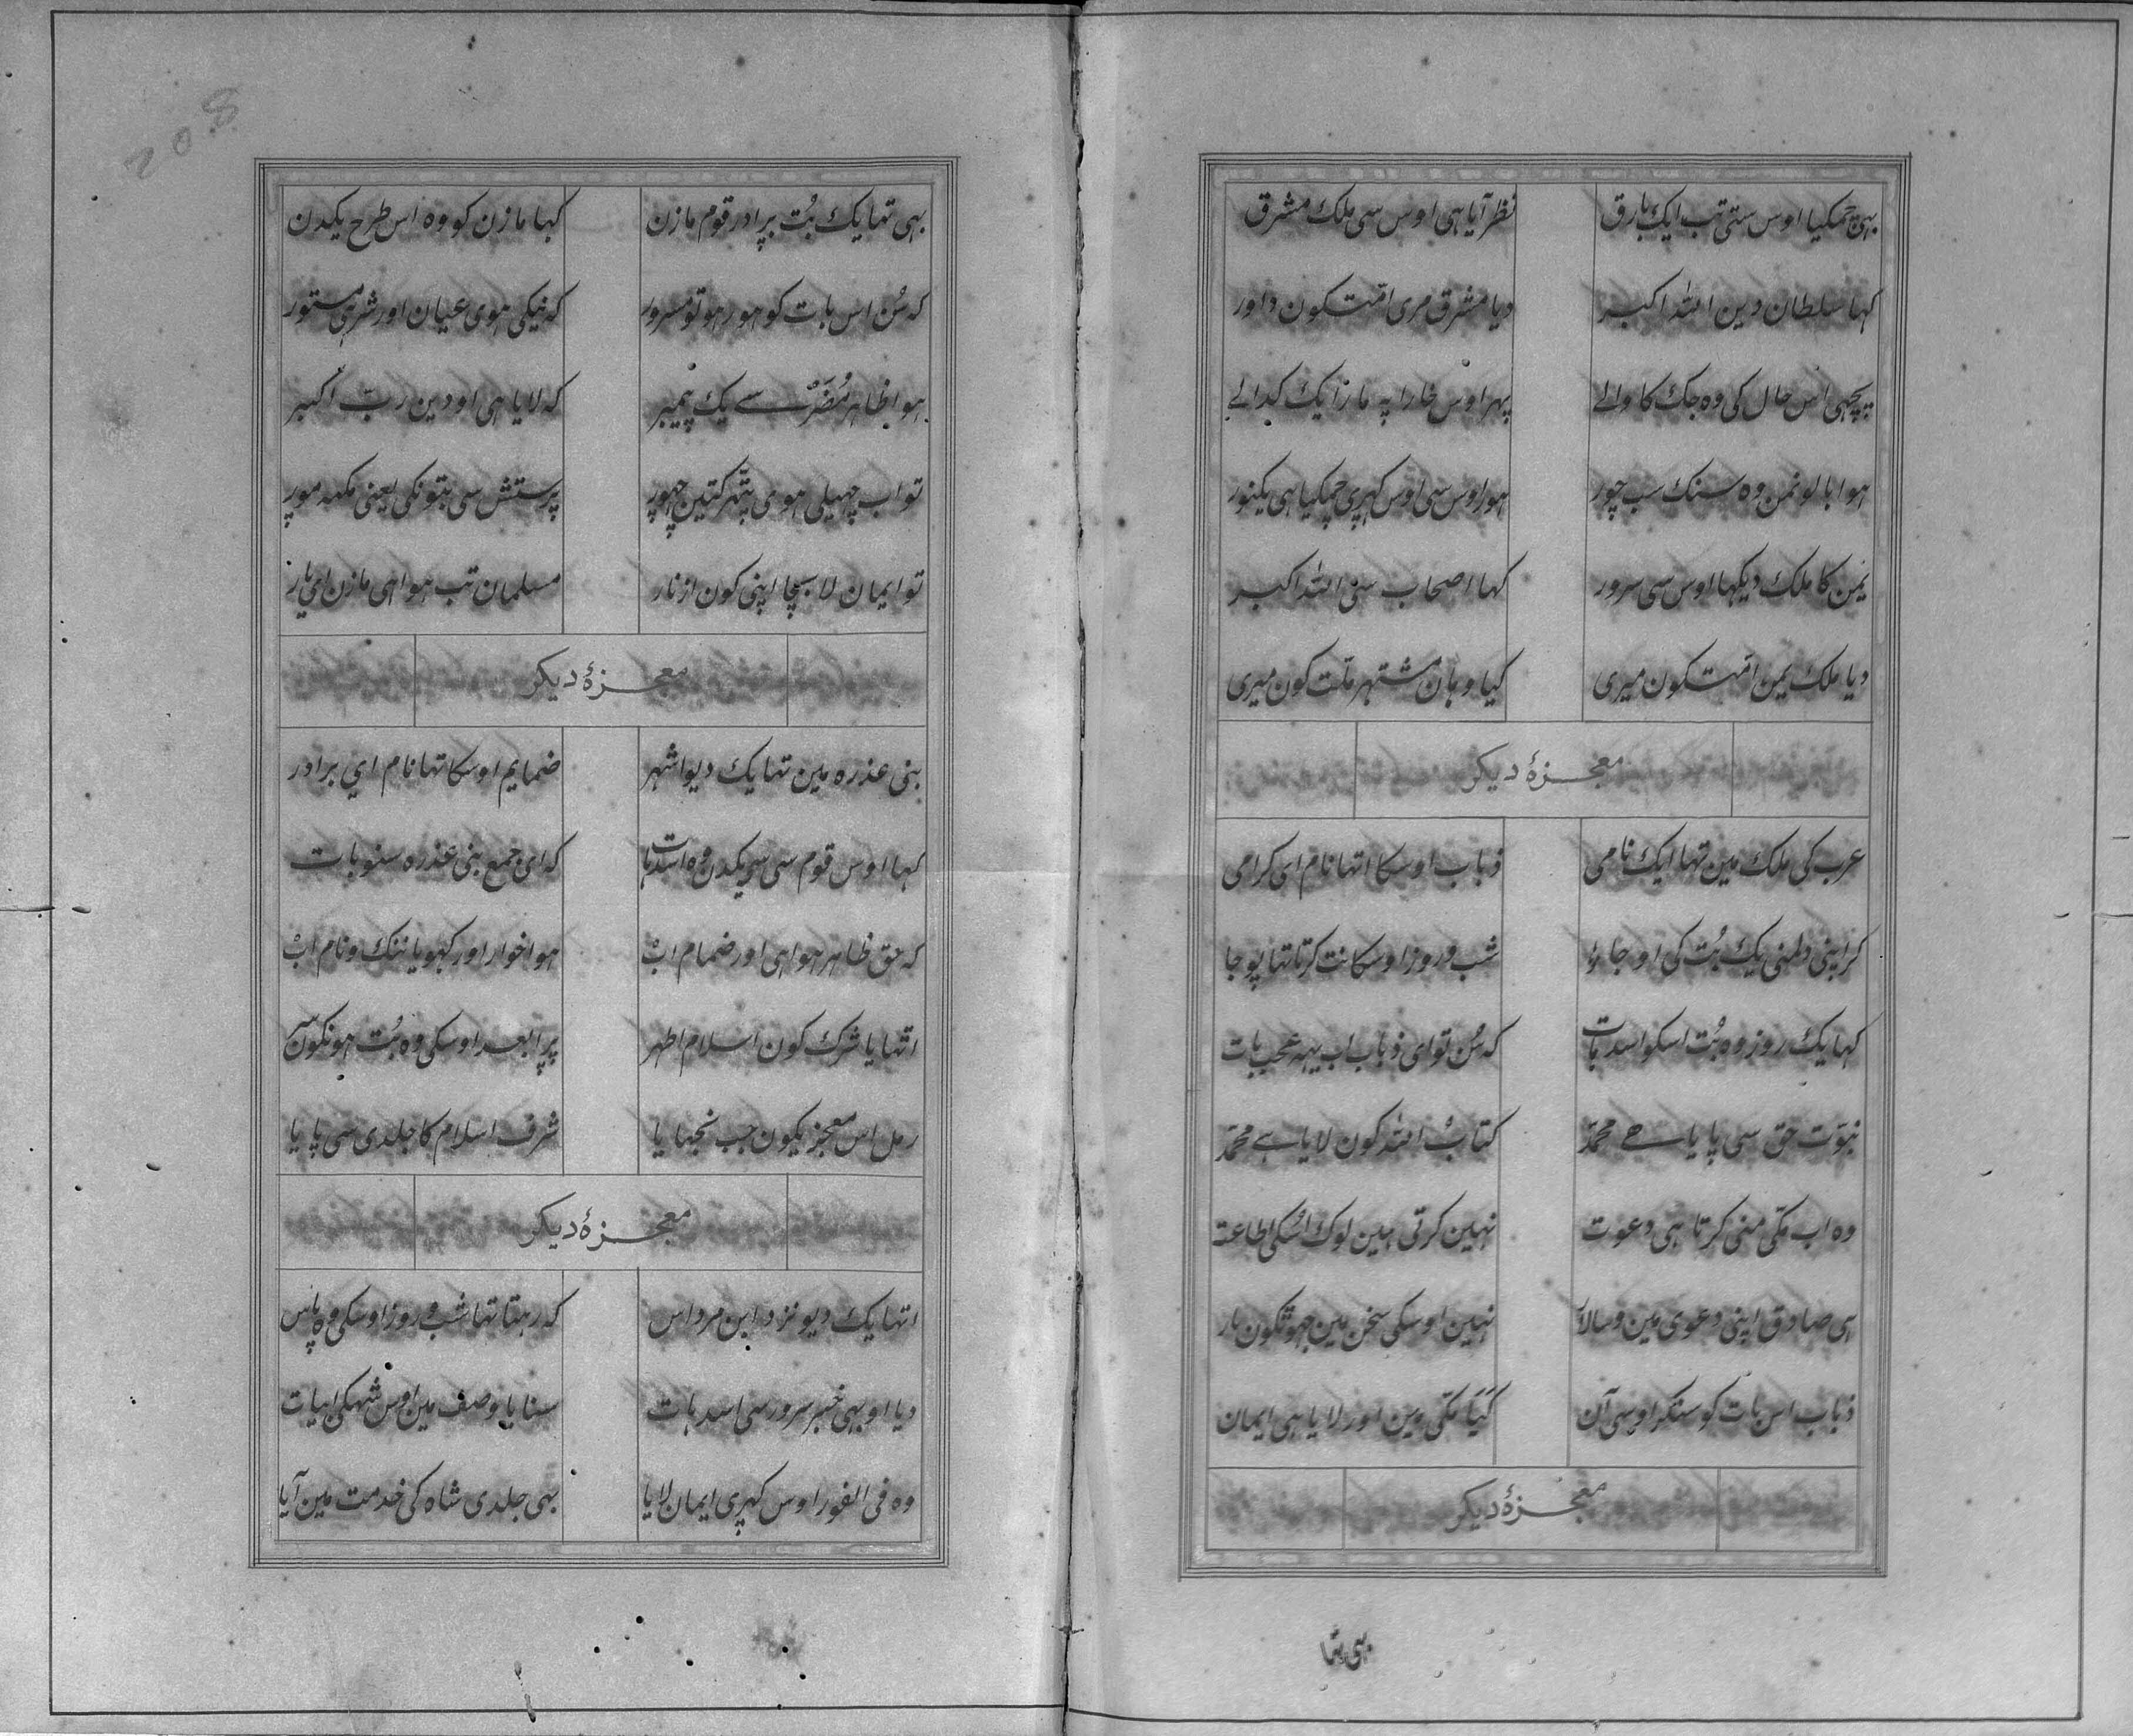 بہی چمکیا اوس ستی تب ایک بارق نظر آیا ہی اوس سی ملک مشرق
کہا سلطان دین الله اکبر دیا مشرق مری امّتکون داور
پیچھی اس حال کی وہ جک کا والے پہر اوس خارا پہ مارا یک کدالے
ہوا بالو نمن وہ سنک سب چور ہوا اوس سی اوس کہری چمکیا ہی یکنور
یمن کا ملک دیکہا اوس سی سرور کہا اصحاب سنی الله اکبر
دیا ملک یمن امّتکون میری کیا وہان مشتہر ملّت کون میری
معجزۂ دیکر
عرب کی ملک مین تہا ایک نامی ذباب اوسکا اتہا نام ای کرامی
کر اپنی دلمنی یک بُت کی او جا شب و روز اوسکا نت کرتا تہا پوجا
کہا یک روز وہ بُت اسکو اسدہات کہ سُن تو ای ذباب اب یہہ عجب بات
نبوّت حق سی پایا ہے محمّد کتابُ الله کون لایا ہے محمّد
وہ اب مکّی منی کرتا ہی دعوت نہین کرتی ہین لوک اُسکی اطاعة
ہی صادق اپنی دعوی مین وسالار نہین اوسکی سخن مین جہوٹکون بار
ذباب اس بات کو سنکر اوسی آن کَیَا مکّی مین اور لایا ہی ایمان
معجزۂ دیکر
بہی تہا
208
بہی تہا یک بُت بر اور قوم مازن کہا مازن کو وہ اس طرح یکدن
کہ سُن اس بات کو ہور ہو تو مسرور کہ نیکی ہوی عیان اور شر ہی مستور
ہوا ظاہر مُضَرْ سے یک پیمبر کہ لایا ہی او دین ربّ اکبر
تو اب چہیلی ہوی پتہر کتین چہور پرستش سی بتونکی یعنی مکہہ مور
تو ایمان لا بچا اپنی کون از نار مسلمان تب ہوا ہی مازن ای یار
معجزۂ دیکر
بنی عذرہ مین تہا یک دیو اشہر ضمایم اوسکا تہا نام ای برادر
کہا اوس قوم سی یکدن وہ اسدہات کہ ای جمع بنی عذرہ سنو بات
کہ حق ظاہر ہوا ہی اور ضمام ابْ ہوا خوار اور کہویا ننک و نام ابْ
اتہایا شرک کون اسلام اطہر پرا بعد اوسکی وہ بُت ہو نکونسر
رمل اس معجزیکون جب نجہایا شرف اسلام کا جلدی سی پایا
معجزۂ دیکر
اتہا یک دیو نزد ابن مرداس کہ رہتا تہا شب و روز اوسکی وہ پاس
دیا او بہی خبر سرور سی اسدہات سنایا وصف مین اوس شہکی ابیات
وہ فی الفور اوس کہری ایمان لایا بہی جلدی شاہ کی خدمت مین آیا